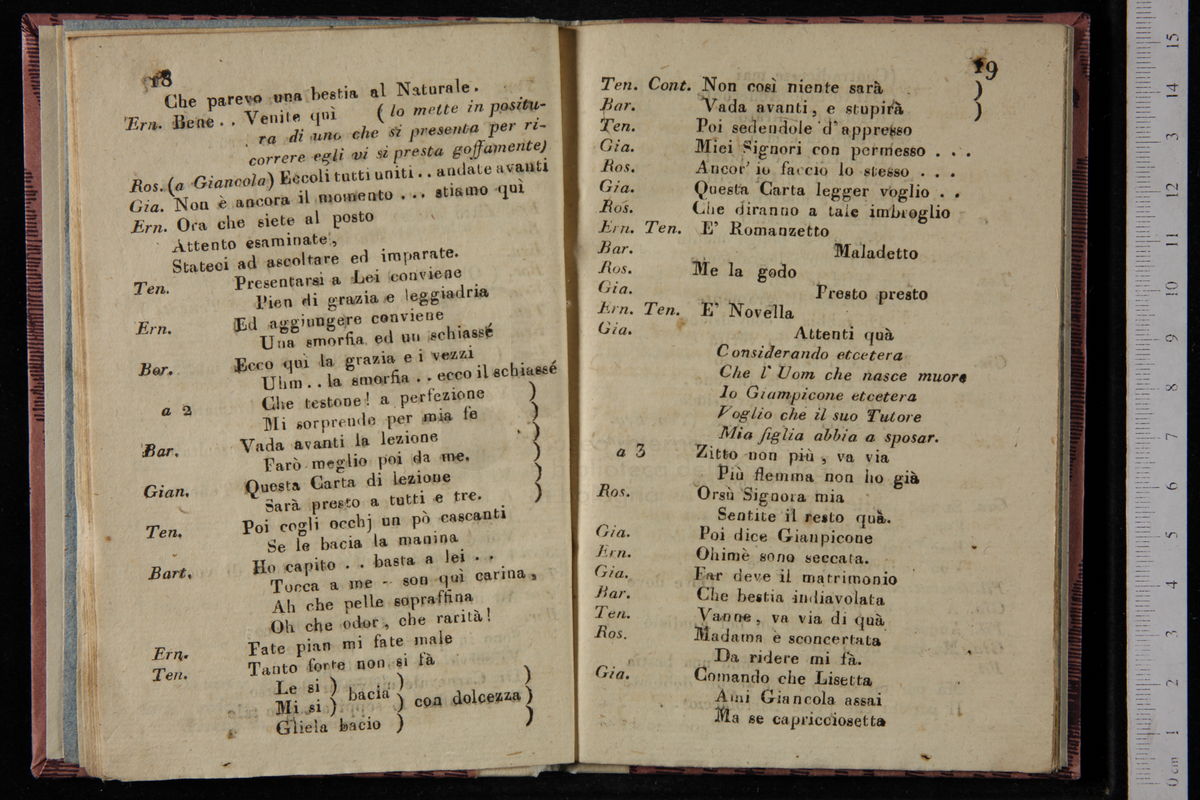 18
Che parevo una bestia al Naturale.
Ern. Bene . . Venite quì ( lo mette in positu-
ra di uno che si presenta per ri-
correre egli vi si presta goffamente)
Ros. (a Giancola) Eccoli tutti uniti . . andate avanti
Gia. Non è ancora il momento . . . stiamo quì
Ern. Ora che siete al posto
Attento esaminate,
Stateci ad ascoltare ed imparate.
Ten. Presentarsi a Lei conviene
Pien di grazia e leggiadria
Ern. Ed aggiungere conviene
Una smorfia ed un schiassé
Bar. Ecco quì la grazia e i vezzi
Uhm . . la smorfia . . ecco il schiassé
a 2 Che testone! a perfezione )
Mi sorprende per mia fe )
Bar. Vada avanti la lezione )
Farò meglio poi da me. )
Gian. Questa Carta di lezione )
Sarà presto a tutti e tre. )
Ten. Poi cogli occhj un pò cascanti
Se le bacia la manina
Bart. Ho capito . . basta a lei . .
Tocca a me - son quì carina,
Ah che pelle sopraffina
Oh che odor, che rarità!
Ern. Fate pian mi fate male
Ten. Tanto forte non si fà
Le si ) bacia ) con dolcezza )
Mi si ) )
Gliela bacio ) )
19
Ten. Cont. Non così niente sarà )
Bar. Vada avanti, e stupirà )
Ten. Poi sedendole d'appresso
Gia. Miei Signori con permesso . . .
Ros. Ancor' io faccio lo stesso . . .
Gia. Questa Carta legger voglio . .
Ros. Che diranno a tale imbroglio
Ern. Ten. E' Romanzetto
Bar. Maladetto
Ros. Me la godo
Gia. Presto presto
Ern. Ten. E' Novella
Gia. Attenti quà
Considerando etcetera
Che l' Uom che nasce muore
Io Giampicone etcetera
Voglio che il suo Tutore
Mia figlia abbia a sposar.
a 3 Zitto non più, va via
Più flemma non ho già
Ros. Orsù Signora mia
Sentite il resto quà.
Gia. Poi dice Gianpicone
Ern. Ohimè sono seccata.
Gia. Far deve il matrimonio
Bar. Che bestia indiavolata
Ten. Vanne, va via di quà
Ros. Madama è sconcertata
Da ridere mi fà.
Gia. Comando che Lisetta
Ami Giancola assai
Ma se capricciosetta
0 cm 1 2 3 4 5 6 7 8 9 10 11 12 13 14 15